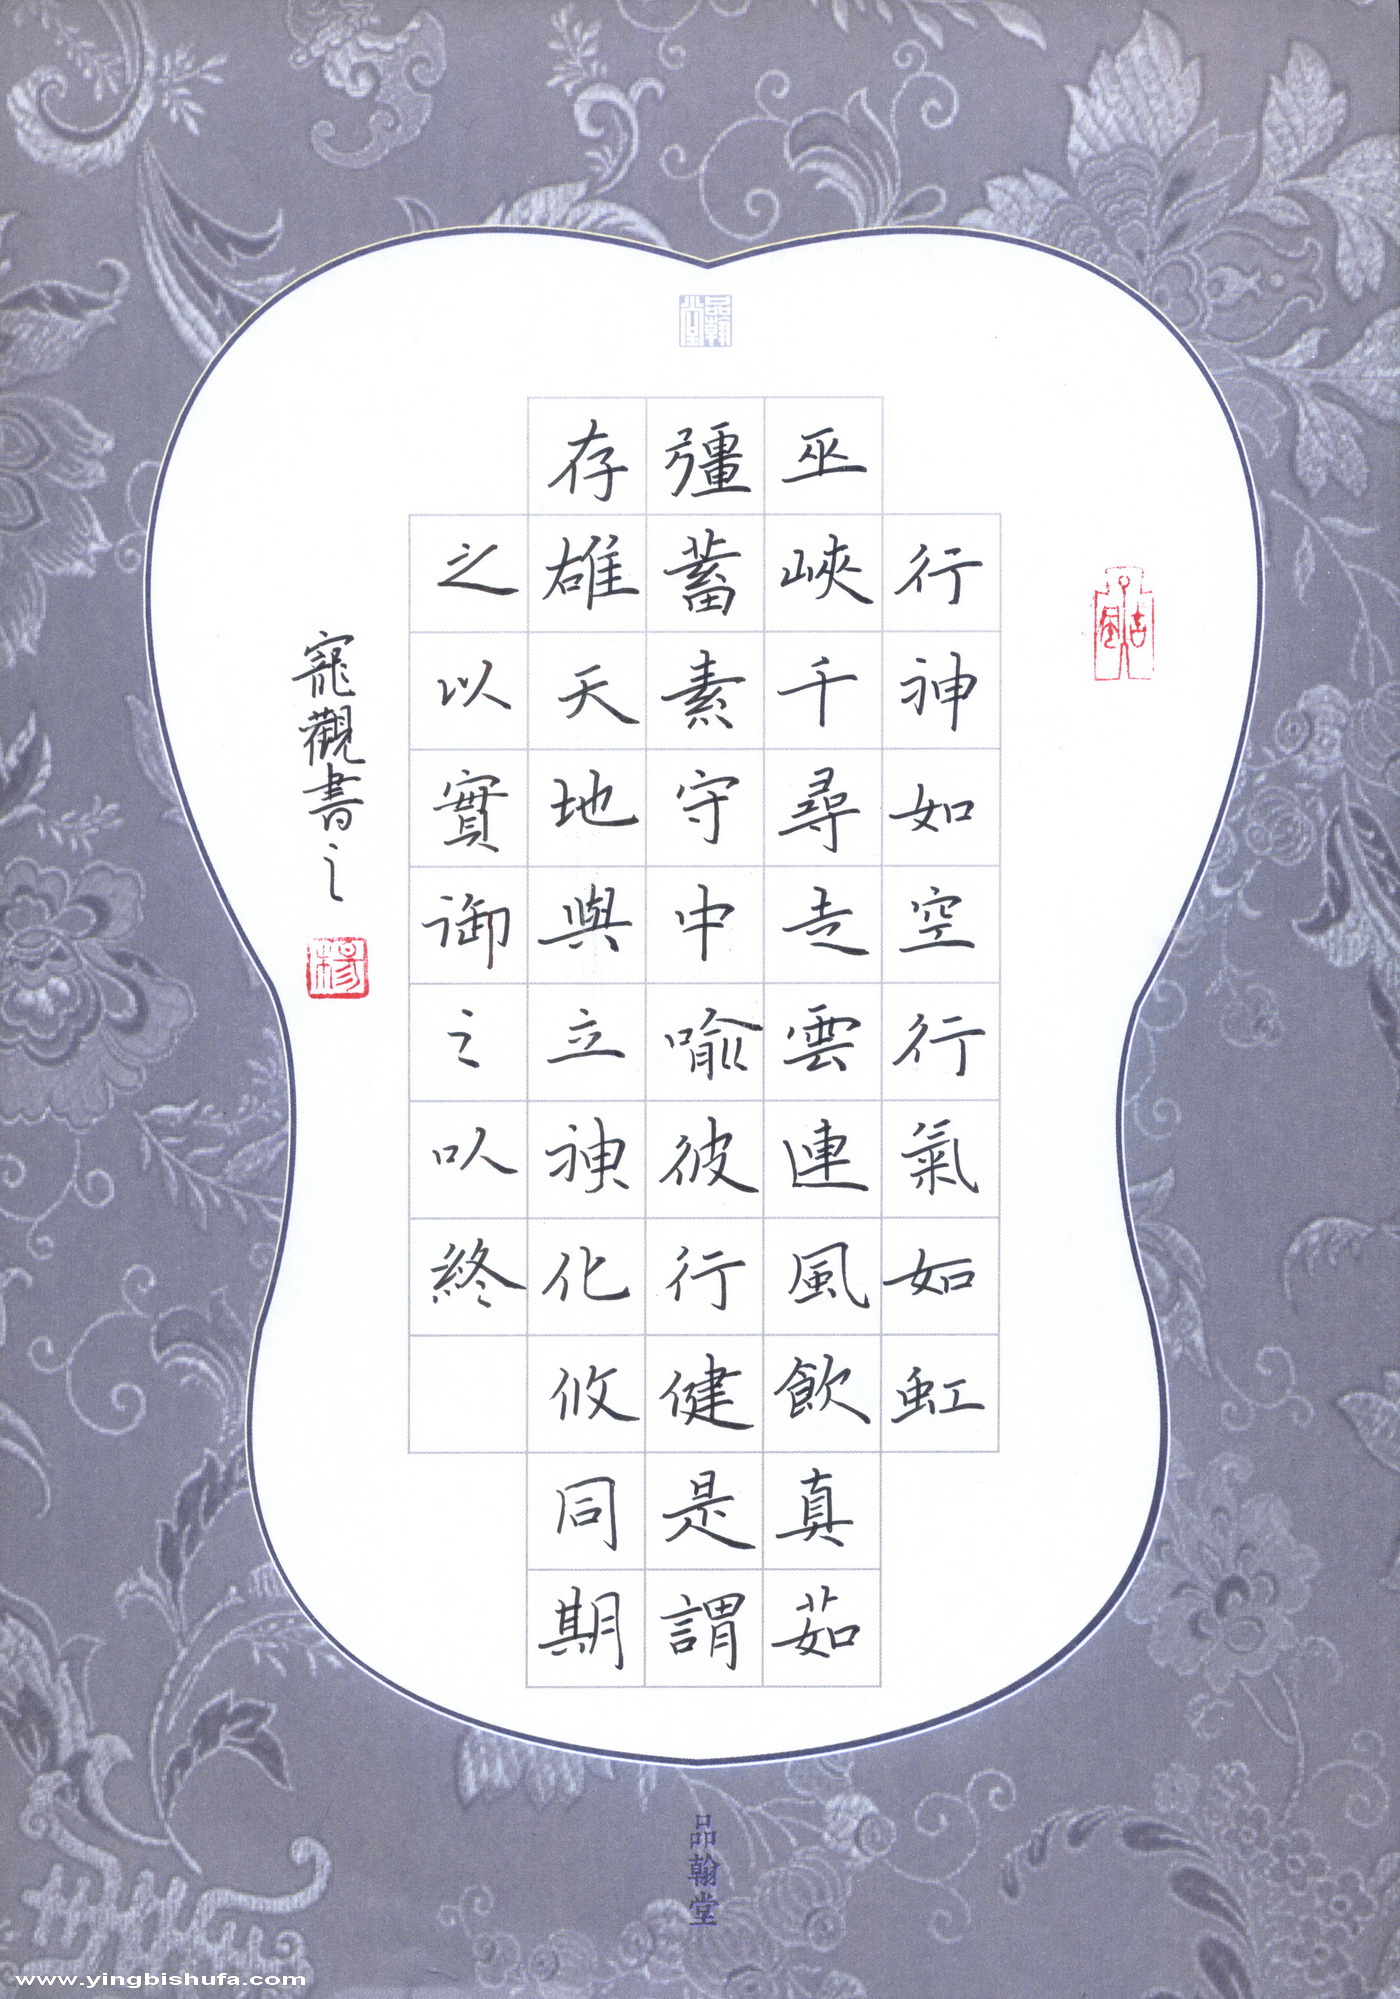 品翰堂
行神如空行氣如虹
巫峽千尋走雲連風飲真茹
彊蓄素守中喻彼行健是謂
存雄天地與立神化攸同期
之以實御之以終
觀書之
楊
品翰堂
www.yingbishufa.com